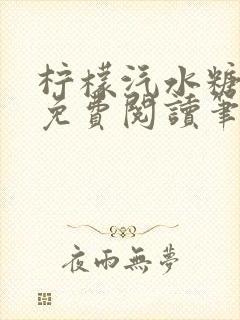 柠檬汽水糖
免費閱讀筆
夜雨無夢